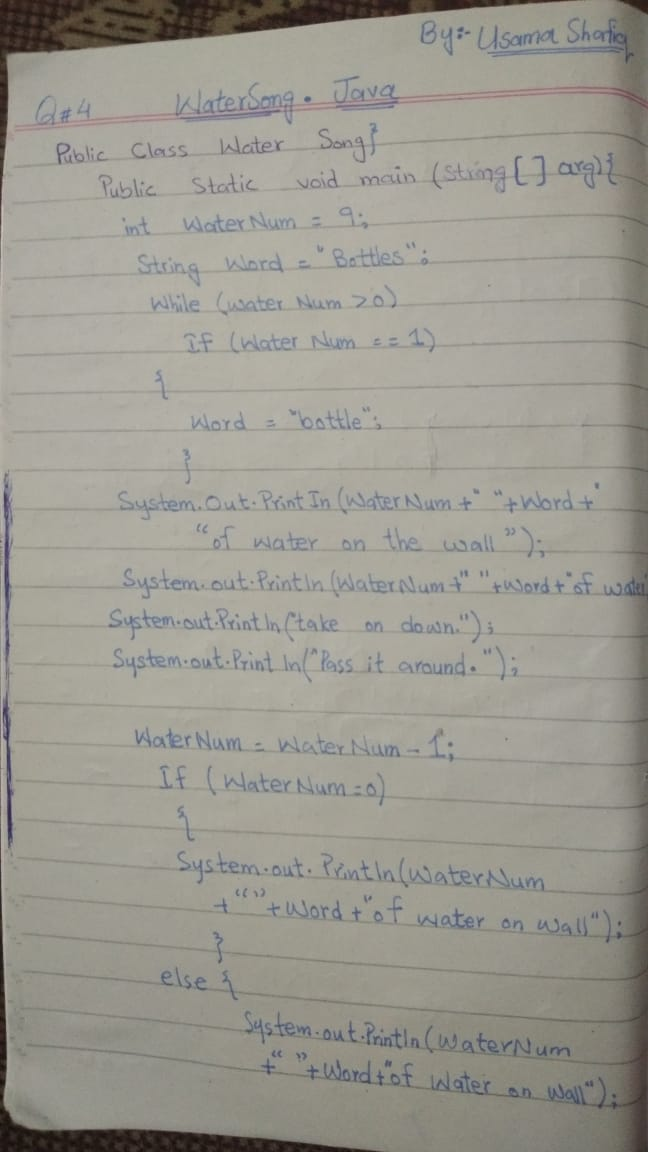 By:- Usama Shafiq
Q#4 WaterSong. Java
Public Class Water Song}
Public Static void main (String [] arg){
int Water Num = 9;
String Word = "Bottles";
While (water Num >0)
If (Water Num == 1)
{
Word = "bottle";
}
System.Out.Print In (Water Num +" "+Word +"
"of water on the wall");
System.out.Println (WaterNum +" "+word +"of water
System.out.Println ("take on down.");
System.out.Print ln("Pass it around.");
Water Num = Water Num - 1;
If (Water Num =0)
{
System.out. Println (WaterNum
+" "+Word +"of water on wall");
}
else {
System.out.Println (WaterNum
+" "+Word+"of Water on Wall");